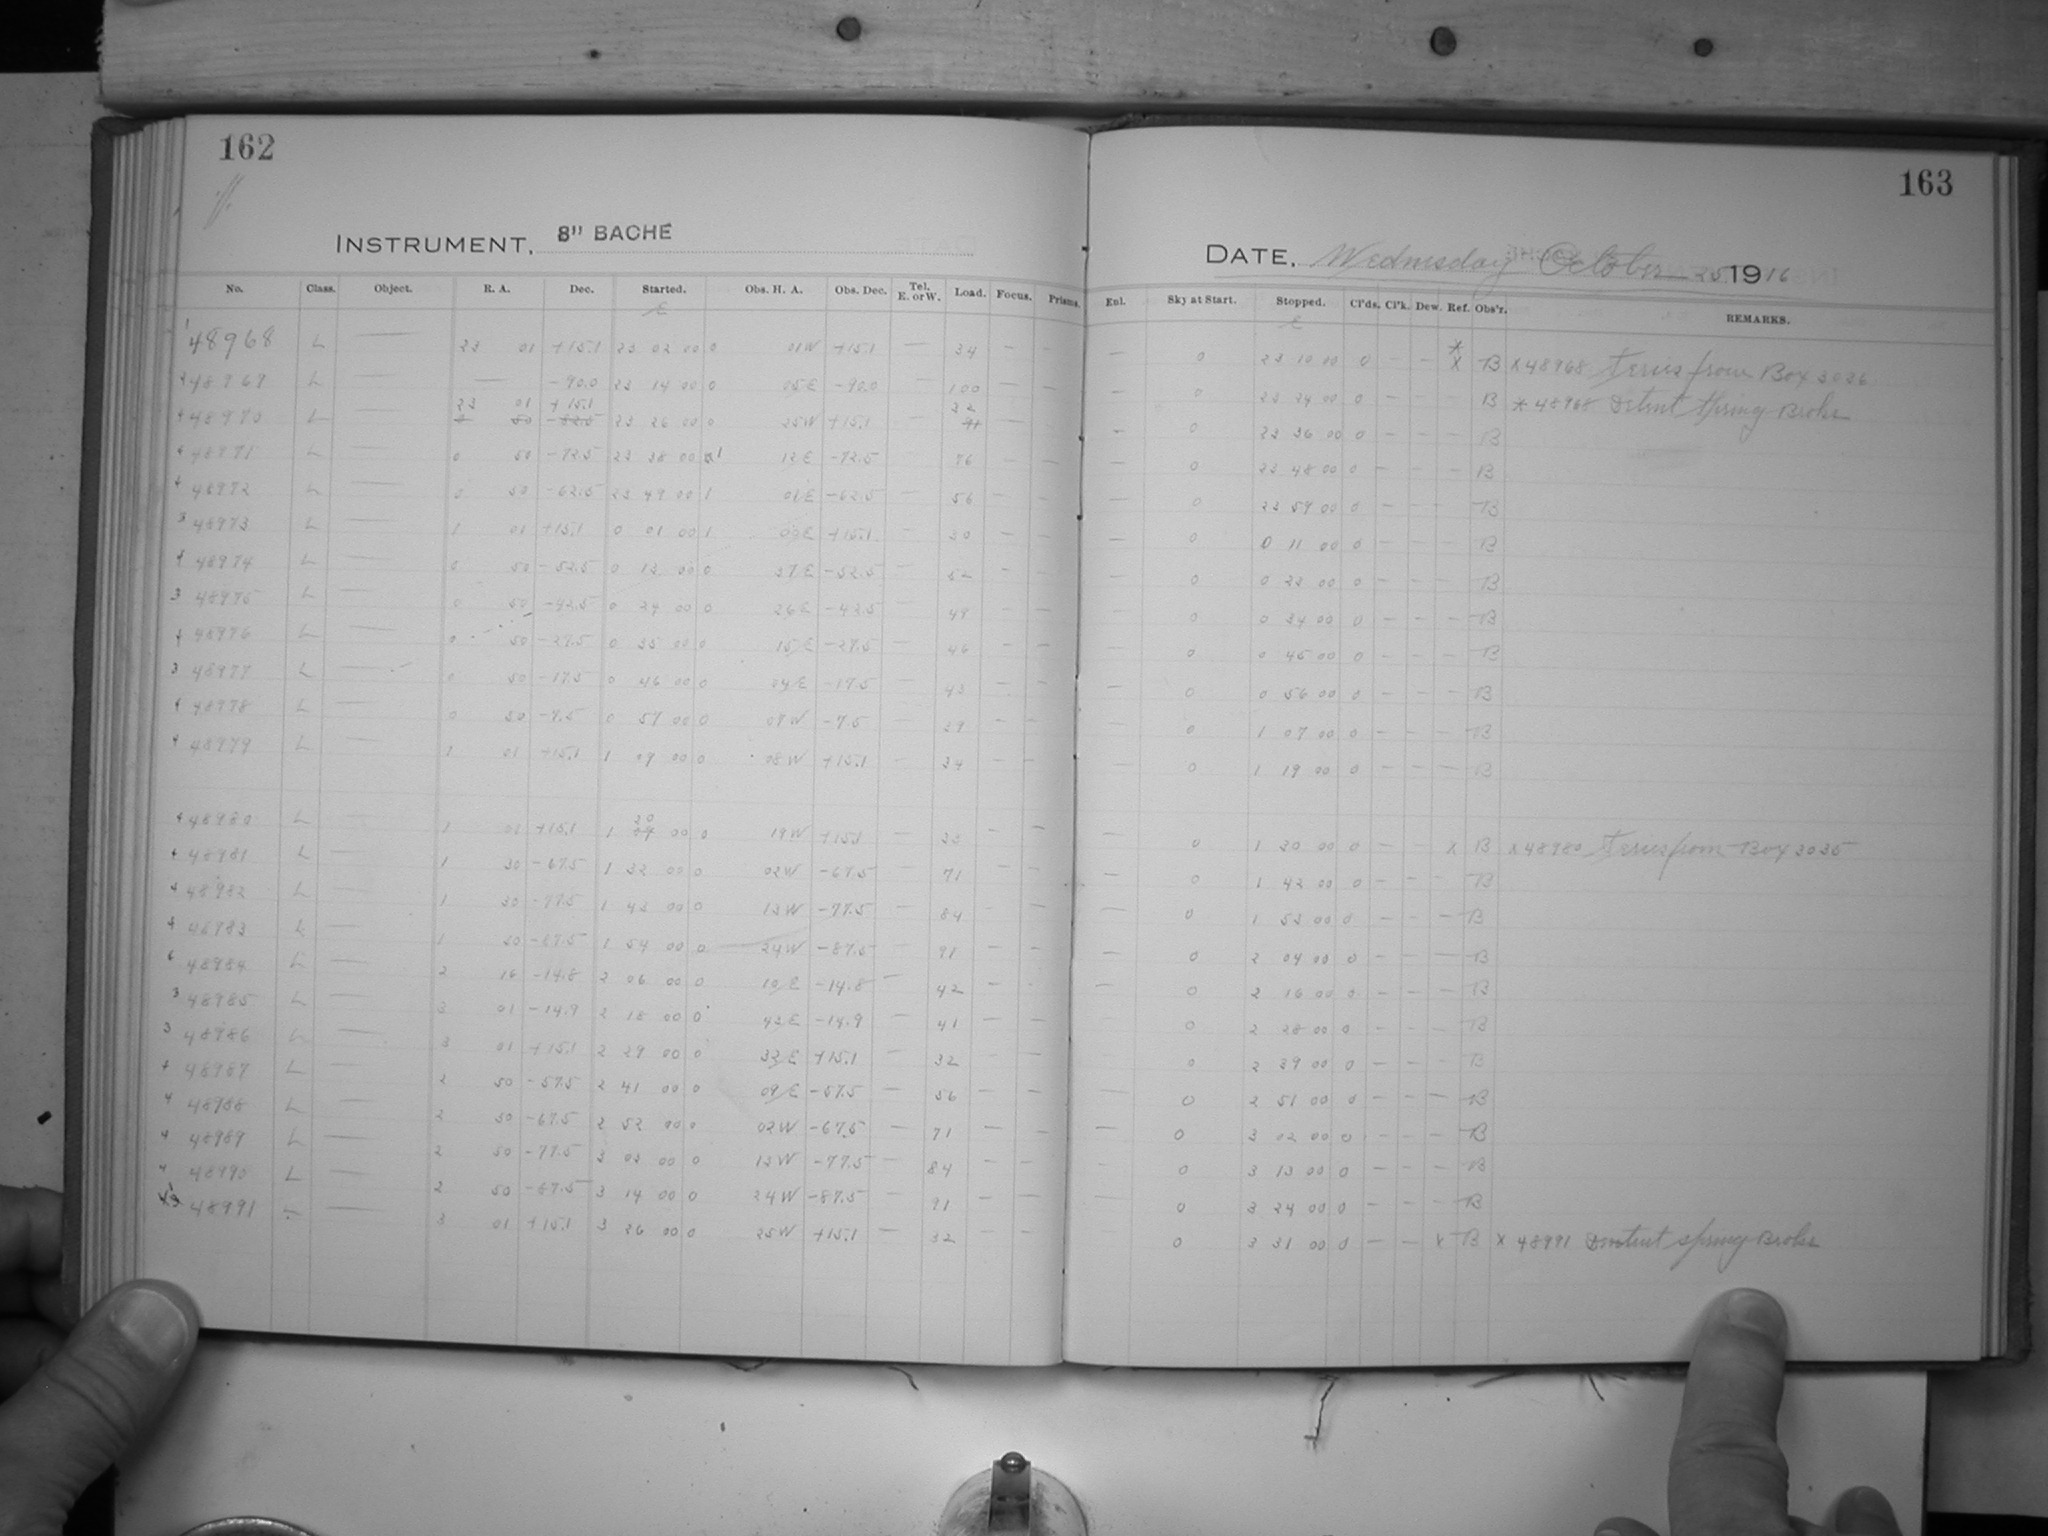 162
INSTRUMENT, 8" BACHE
No. Class. Object. R. A. Dec. Started. Obs. H. A. Obs. Dec. Tel. E. or W. Load. Focus. Prisms.
E
48968 L — 23 01 +15.1 23 02 00 0 01W +15.1 — 34 — —
48969 L — — -90.0 23 14 00 0 05E -90.0 — 100 — —
23 01 +15.1 32
48970 L — 0 50 -82.5 23 26 00 0 25W +15.1 — —
48971 L — 0 50 -72.5 23 38 00 1 12E -72.5 — 76 — —
48972 L — 0 50 -62.5 23 49 00 1 01E -62.5 — 56 — —
48973 L — 1 01 +15.1 0 01 00 1 00E +15.1 — 30 — —
48974 L — 0 50 -52.5 0 12 00 0 37E -52.5 — 52 — —
48975 L — 0 50 -42.5 0 24 00 0 26E -42.5 — 48 — —
48976 L — 0 50 -27.5 0 35 00 0 15E -27.5 — 46 — —
48977 L — 0 50 -17.5 0 46 00 0 04E -17.5 — 43 — —
48978 L — 0 50 -7.5 0 57 00 0 07W -7.5 — 39 — —
48979 L — 1 01 +15.1 1 09 00 0 08W +15.1 — 34 — —
20
48980 L — 1 01 +15.1 1 09 00 0 19W +15.1 — 33 — —
48981 L — 1 30 -67.5 1 32 00 0 02W -67.5 — 71 — —
48982 L — 1 30 -77.5 1 43 00 0 13W -77.5 — 84 — —
48983 L — 1 30 -87.5 1 54 00 0 24W -87.5 — 91 — —
48984 L — 2 16 -14.8 2 06 00 0 10E -14.8 — 42 — —
48985 L — 3 01 -14.9 2 18 00 0 43E -14.9 — 41 — —
48986 L — 3 01 +15.1 2 29 00 0 32E +15.1 — 32 — —
48987 L — 2 50 -57.5 2 41 00 0 09E -57.5 — 56 — —
48988 L — 2 50 -67.5 2 52 00 0 02W -67.5 — 71 — —
48989 L — 2 50 -77.5 3 03 00 0 13W -77.5 — 84 — —
48990 L — 2 50 -87.5 3 14 00 0 24W -87.5 — 91 — —
48991 L — 3 01 +15.1 3 26 00 0 25W +15.1 — 32 — —
163
DATE, Wednesday October 25 1916
Enl. Sky at Start. Stopped. Cl'ds. Cl'k. Dew. Ref. Obs'r. REMARKS.
E
— 0 23 10 00 0 — — * x B x 48968 Series from Box 3036
— 0 23 24 00 0 — B * 48968 Detent Spring Broke
— 0 23 36 00 0 — B
— 0 23 48 00 0 — — — B
— 0 23 59 00 0 — — — B
— 0 0 11 00 0 — — — B
— 0 0 22 00 0 — — — B
— 0 0 34 00 0 — — — B
— 0 0 45 00 0 — — — B
— 0 0 56 00 0 — — — B
— 0 1 07 00 0 — — — B
— 0 1 19 00 0 — — — B
— 0 1 30 00 0 — — x B x 48980 Series from Box 3035
— 0 1 42 00 0 — — — B
— 0 1 53 00 0 — — — B
— 0 2 04 00 0 — — — B
— 0 2 16 00 0 — — — B
— 0 2 28 00 0 — — — B
0 2 39 00 0 — — — B
— 0 2 51 00 0 — — — B
— 0 3 02 00 0 — — — B
— 0 3 13 00 0 — — — B
— 0 3 24 00 0 — — — B
0 3 31 00 0 — — x B x 48991 Detent spring Broke